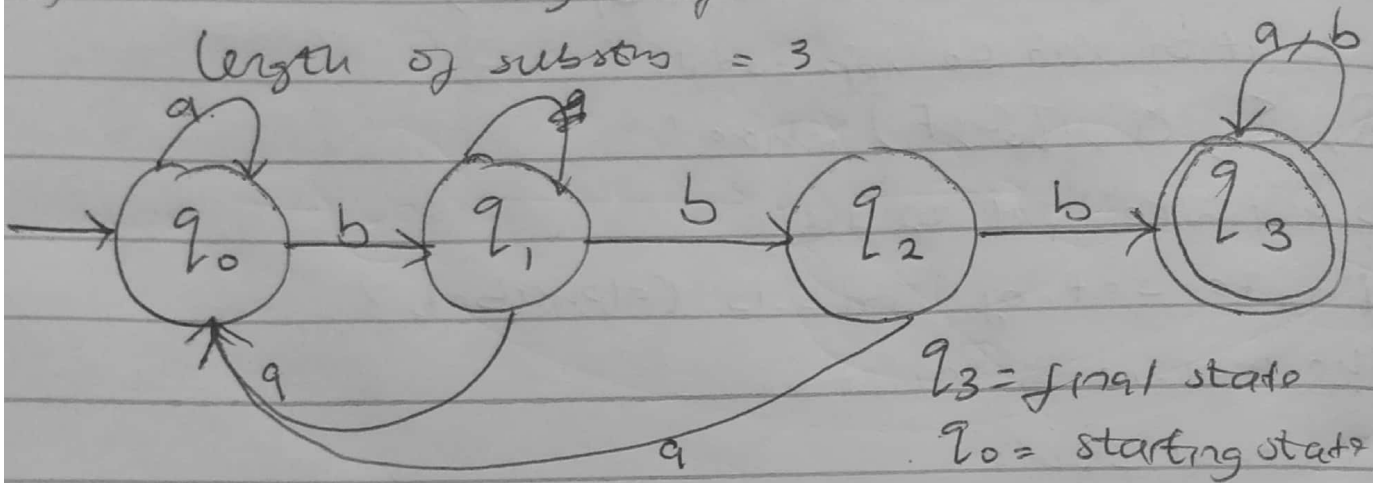 length of substrs = 3
a
a, b
q0
b
q1
b
q2
b
q3
a
a
q3 = final state
q0 = starting state